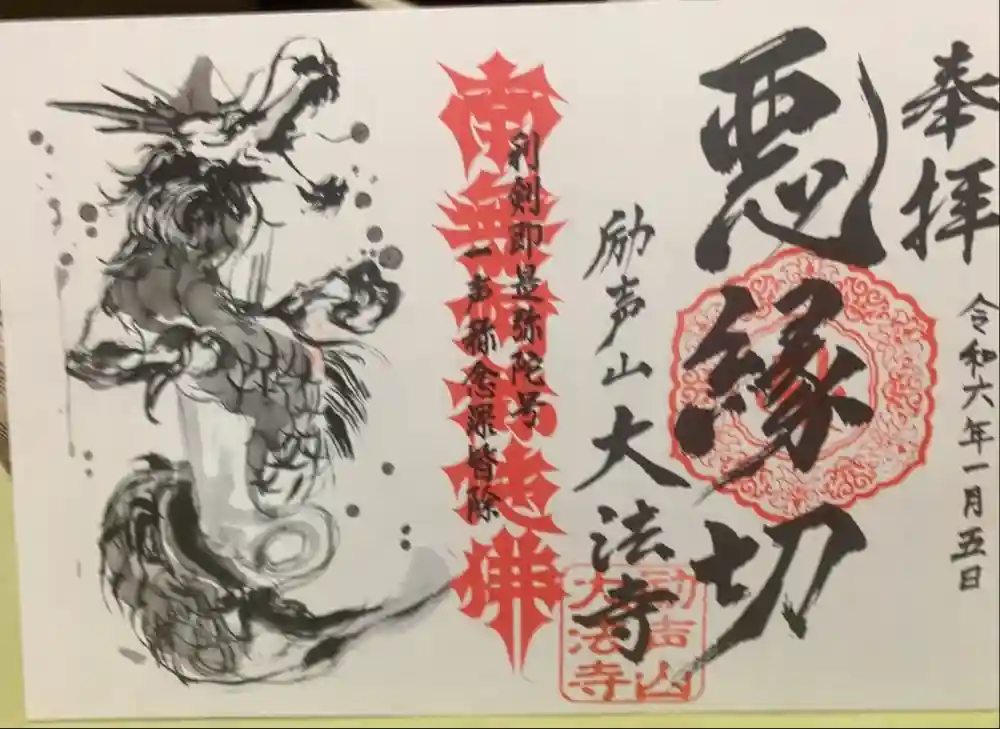 奉拝
令和六年一月五日
悪縁切
励声山大法寺
励声山
大法寺
利剣即是弥陀号
一声称念罪皆除
南無阿弥陀佛